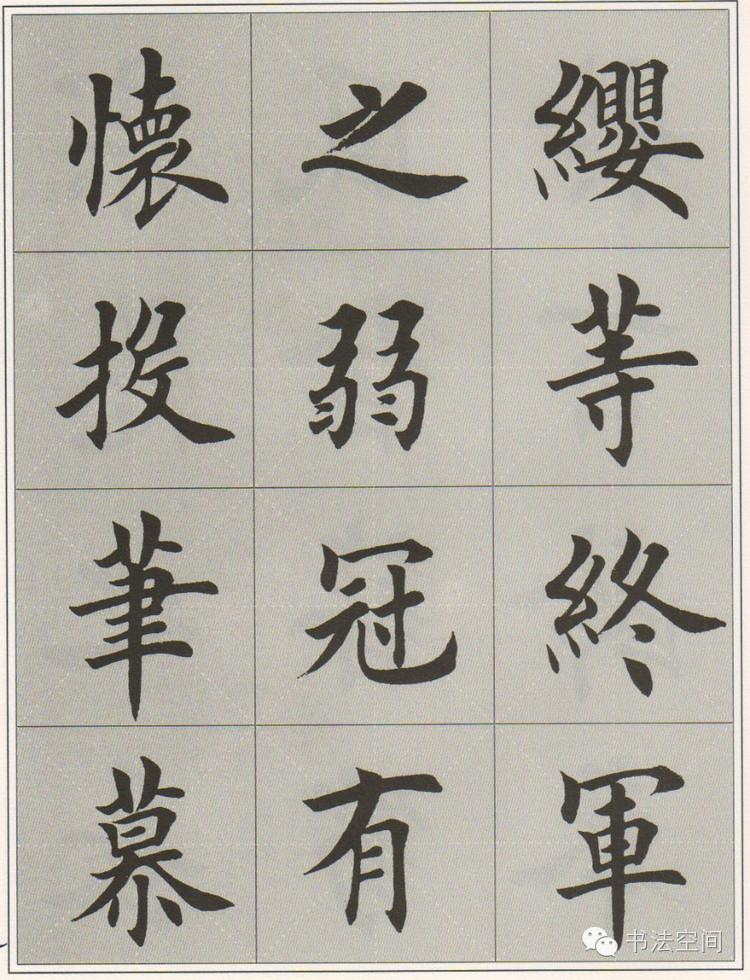 纓等終軍
之弱冠有
懷投筆慕
书法空间